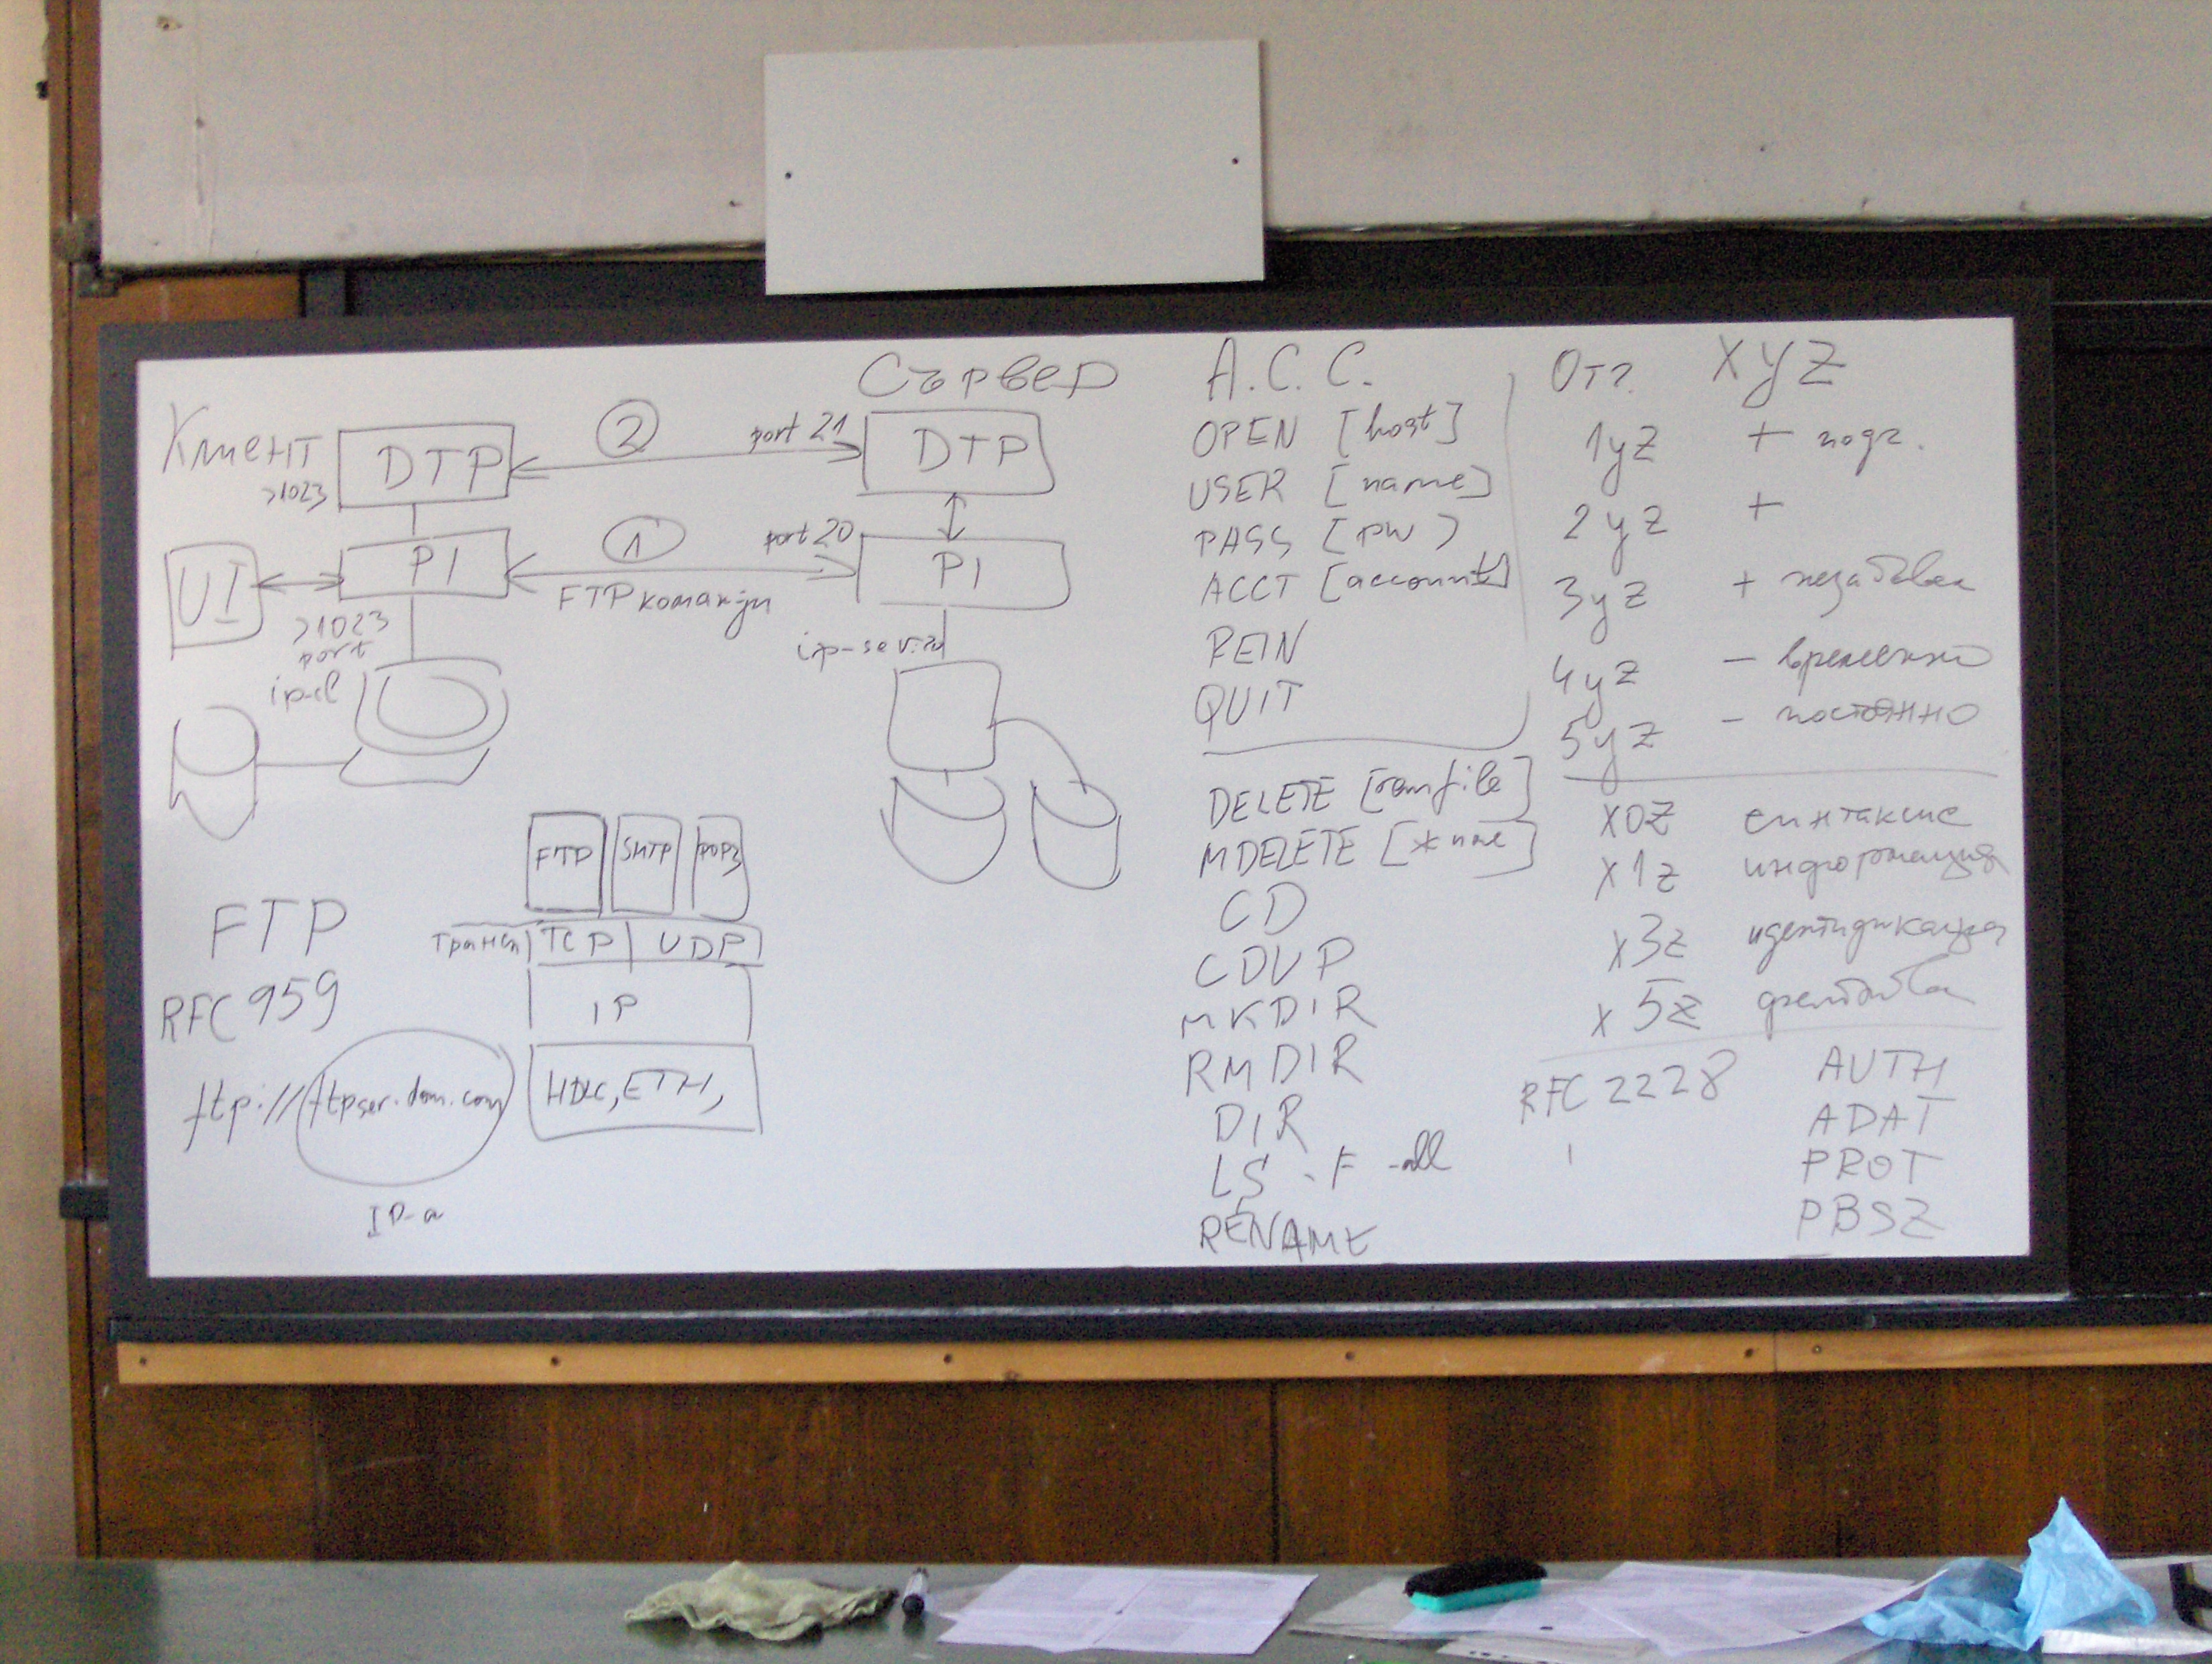 Сървер
Клиент
>1023
DTP
2
port 21
DTP
UI
PI
1
port 20
PI
FTP команди
>1023
port
ip-cl
FTP
SMTP
POP3
Трансп
TCP
UDP
IP
HDLC, ETH,
FTP
RFC 959
ftp://ftpser.dom.com
IP-a
A.C.C.
OPEN [host]
USER [name]
PASS [pw]
ACCT [account]
REIN
QUIT
DELETE [remfile]
MDELETE [*
CD
CDUP
MKDIR
RMDIR
DIR
LS -F -all
RENAME
Отг. XYZ
1yz + подг.
2yz +
3yz + незабавен
4yz - временно
5yz - постоянно
x0z синтаксис
x1z информация
x3z идентификация
x5z файлова
RFC 2228 AUTH
ADAT
PROT
PBSZ